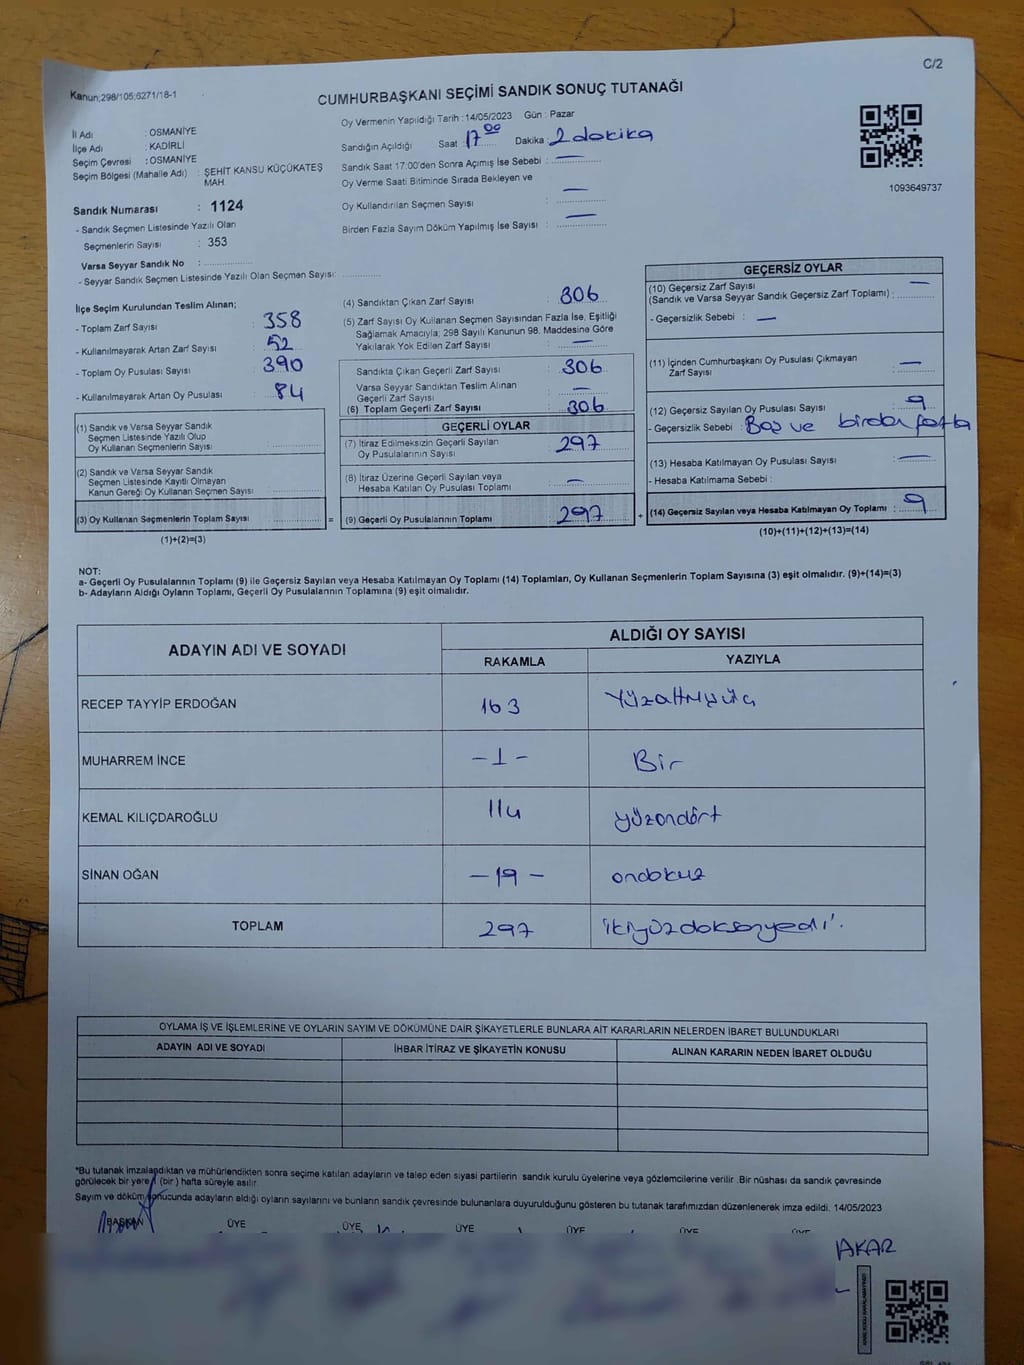 C/2
Kanun;298/105;6271/18-1
CUMHURBAŞKANI SEÇİMİ SANDIK SONUÇ TUTANAĞI
Oy Vermenin Yapıldığı Tarih : 14/05/2023 Gün : Pazar
İl Adı : OSMANİYE
İlçe Adı : KADİRLİ
Seçim Çevresi : OSMANİYE
Seçim Bölgesi (Mahalle Adı) : ŞEHİT KANSU KÜÇÜKATEŞ MAH.
Sandığın Açıldığı Saat : 17 00 Dakika : 2 dakika
Sandık Saat 17:00'den Sonra Açımış İse Sebebi : —
Oy Verme Saati Bitiminde Sırada Bekleyen ve
Oy Kullandırılan Seçmen Sayısı : —
Birden Fazla Sayım Döküm Yapılmış İse Sayısı : —
1093649737
Sandık Numarası : 1124
- Sandık Seçmen Listesinde Yazılı Olan
Seçmenlerin Sayısı : 353
Varsa Seyyar Sandık No :
- Seyyar Sandık Seçmen Listesinde Yazılı Olan Seçmen Sayısı:
İlçe Seçim Kurulundan Teslim Alınan;
- Toplam Zarf Sayısı : 358
- Kullanılmayarak Artan Zarf Sayısı : 52
- Toplam Oy Pusulası Sayısı : 390
- Kullanılmayarak Artan Oy Pusulası : 84
(1) Sandık ve Varsa Seyyar Sandık
Seçmen Listesinde Yazılı Olup
Oy Kullanan Seçmenlerin Sayısı :
(2) Sandık ve Varsa Seyyar Sandık
Seçmen Listesinde Kayıtlı Olmayan
Kanun Gereği Oy Kullanan Seçmen Sayısı :
(3) Oy Kullanan Seçmenlerin Toplam Sayısı : =
(1)+(2)=(3)
(4) Sandıktan Çıkan Zarf Sayısı : 306
(5) Zarf Sayısı Oy Kullanan Seçmen Sayısından Fazla İse, Eşitliği
Sağlamak Amacıyla; 298 Sayılı Kanunun 98. Maddesine Göre
Yakılarak Yok Edilen Zarf Sayısı : —
Sandıkta Çıkan Geçerli Zarf Sayısı : 306
Varsa Seyyar Sandıktan Teslim Alınan
Geçerli Zarf Sayısı : —
(6) Toplam Geçerli Zarf Sayısı : 306
GEÇERLİ OYLAR
(7) İtiraz Edilmeksizin Geçerli Sayılan
Oy Pusulalarının Sayısı : 297
(8) İtiraz Üzerine Geçerli Sayılan veya
Hesaba Katılan Oy Pusulası Toplamı : —
(9) Geçerli Oy Pusulalarının Toplamı : 297 +
GEÇERSİZ OYLAR
(10) Geçersiz Zarf Sayısı
(Sandık ve Varsa Seyyar Sandık Geçersiz Zarf Toplamı) : —
- Geçersizlik Sebebi : —
(11) İçinden Cumhurbaşkanı Oy Pusulası Çıkmayan
Zarf Sayısı : —
(12) Geçersiz Sayılan Oy Pusulası Sayısı : 9
- Geçersizlik Sebebi : Boş ve birden fazla
(13) Hesaba Katılmayan Oy Pusulası Sayısı : —
- Hesaba Katılmama Sebebi :
(14) Geçersiz Sayılan veya Hesaba Katılmayan Oy Toplamı : 9
(10)+(11)+(12)+(13)=(14)
NOT:
a- Geçerli Oy Pusulalarının Toplamı (9) ile Geçersiz Sayılan veya Hesaba Katılmayan Oy Toplamı (14) Toplamları, Oy Kullanan Seçmenlerin Toplam Sayısına (3) eşit olmalıdır. (9)+(14)=(3)
b- Adayların Aldığı Oyların Toplamı, Geçerli Oy Pusulalarının Toplamına (9) eşit olmalıdır.
ADAYIN ADI VE SOYADI ALDIĞI OY SAYISI
RAKAMLA YAZIYLA
RECEP TAYYİP ERDOĞAN 163 Yüzaltmışüç
MUHARREM İNCE -1- Bir
KEMAL KILIÇDAROĞLU 114 yüzondört
SİNAN OĞAN -19- ondokuz
TOPLAM 297 ikiyüzdoksanyedi
OYLAMA İŞ VE İŞLEMLERİNE VE OYLARIN SAYIM VE DÖKÜMÜNE DAİR ŞİKAYETLERLE BUNLARA AİT KARARLARIN NELERDEN İBARET BULUNDUKLARI
ADAYIN ADI VE SOYADI İHBAR İTİRAZ VE ŞİKAYETİN KONUSU ALINAN KARARIN NEDEN İBARET OLDUĞU
*Bu tutanak imzalandıktan ve mühürlendikten sonra seçime katılan adayların ve talep eden siyasi partilerin sandık kurulu üyelerine veya gözlemcilerine verilir. Bir nüshası da sandık çevresinde
görülecek bir yere (bir) hafta süreyle asılır.
Sayım ve döküm sonucunda adayların aldığı oyların sayılarını ve bunların sandık çevresinde bulunanlara duyurulduğunu gösteren bu tutanak tarafımızdan düzenlenerek imza edildi. 14/05/2023
BAŞKAN ÜYE ÜYE ÜYE ÜYE ÜYE ÜYE
AKAR